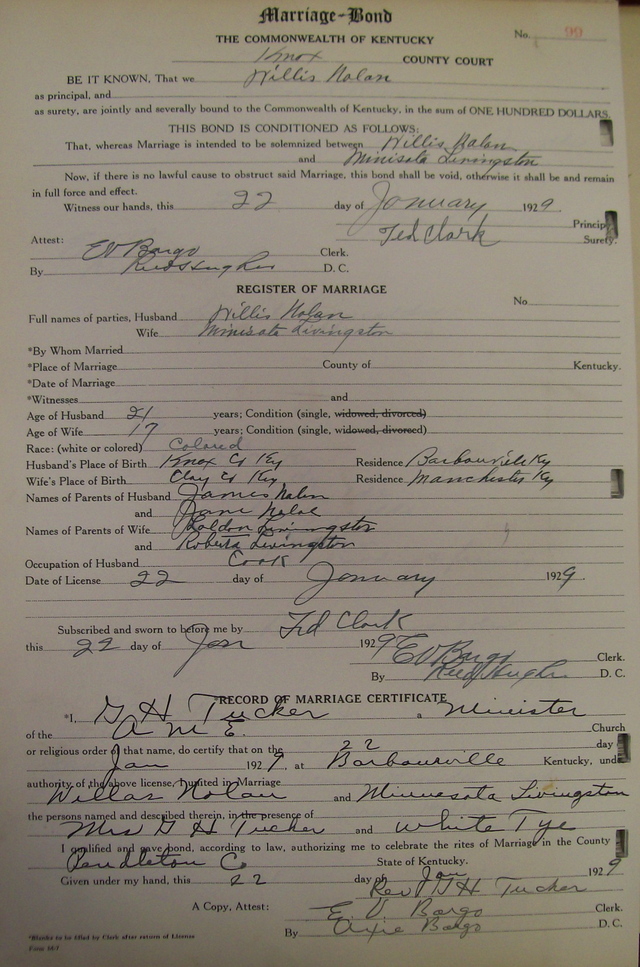 Marriage-Bond
THE COMMONWEALTH OF KENTUCKY
No. 99
Knox COUNTY COURT
BE IT KNOWN, That we Willis Nolan
as principal, and
as surety, are jointly and severally bound to the Commonwealth of Kentucky, in the sum of ONE HUNDRED DOLLARS.
THIS BOND IS CONDITIONED AS FOLLOWS:
That, whereas Marriage is intended to be solemnized between Willis Nalan
and Minisota Livingston
Now, if there is no lawful cause to obstruct said Marriage, this bond shall be void, otherwise it shall be and remain
in full force and effect.
Witness our hands, this 22 day of January 1929
Principal
Ted Clark Surety.
Attest: EV Bargo Clerk.
By Reed Hughes D. C.
REGISTER OF MARRIAGE
No
Full names of parties, Husband Willis Nolan
Wife Minisota Livingston
*By Whom Married
*Place of Marriage County of Kentucky.
*Date of Marriage
*Witnesses and
Age of Husband 21 years; Condition (single, widowed, divorced)
Age of Wife 17 years; Condition (single, widowed, divorced)
Race: (white or colored) Colored
Husband's Place of Birth Knox Co Ky Residence Barbourville Ky
Wife's Place of Birth Clay Co Ky Residence Manchester Ky
Names of Parents of Husband James Nalan
and Jane
Names of Parents of Wife Livingston
and Roberta Livingston
Occupation of Husband Cook
Date of License 22 day of January 1929
Subscribed and sworn to before me by Ted Clark
this 22 day of Jan 1929 EV Bargo Clerk.
By Reed Hughes D. C.
RECORD OF MARRIAGE CERTIFICATE
*I, G H Tucker a Minister
of the A M E. Church
or religious order of that name, do certify that on the 22 day
Jan 1929, at Barbourville Kentucky, under
authority of the above license, I united in Marriage
Willas Nolan and Minnesota Livingston
the persons named and described therein, in the presence of
Mrs G H Tucker and White Tye
I qualified and gave bond, according to law, authorizing me to celebrate the rites of Marriage in the County
Pendleton Co State of Kentucky.
Given under my hand, this 22 day of Jan 1929
Rev G H Tucker
A Copy, Attest: E V Bargo Clerk.
By Bargo D. C.
*Blanks to be filled by Clerk after return of License